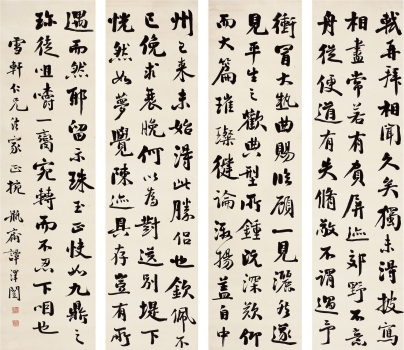 軾再拜相聞久矣獨未得披寫
相盡常若有負屏迹郊野不意
舟從便道有失脩敬不謂過予
衝冒大熱曲賜臨顧一見灑然遂
見平生之歡典型所鍾既深歎仰
而大篇璀璨健論激揚蓋自中
州之来未始得此勝侶也欽佩不
已俛求衰晚何以為對送別堤下
恍然如夢覺陳迹具存豈有所
遇而然耶留示珠玉正快如九鼎之
珍徒咀嚼一臠宛轉而不忍下咽也
雪軒仁兄法家正捥 瓶齋譚澤闓